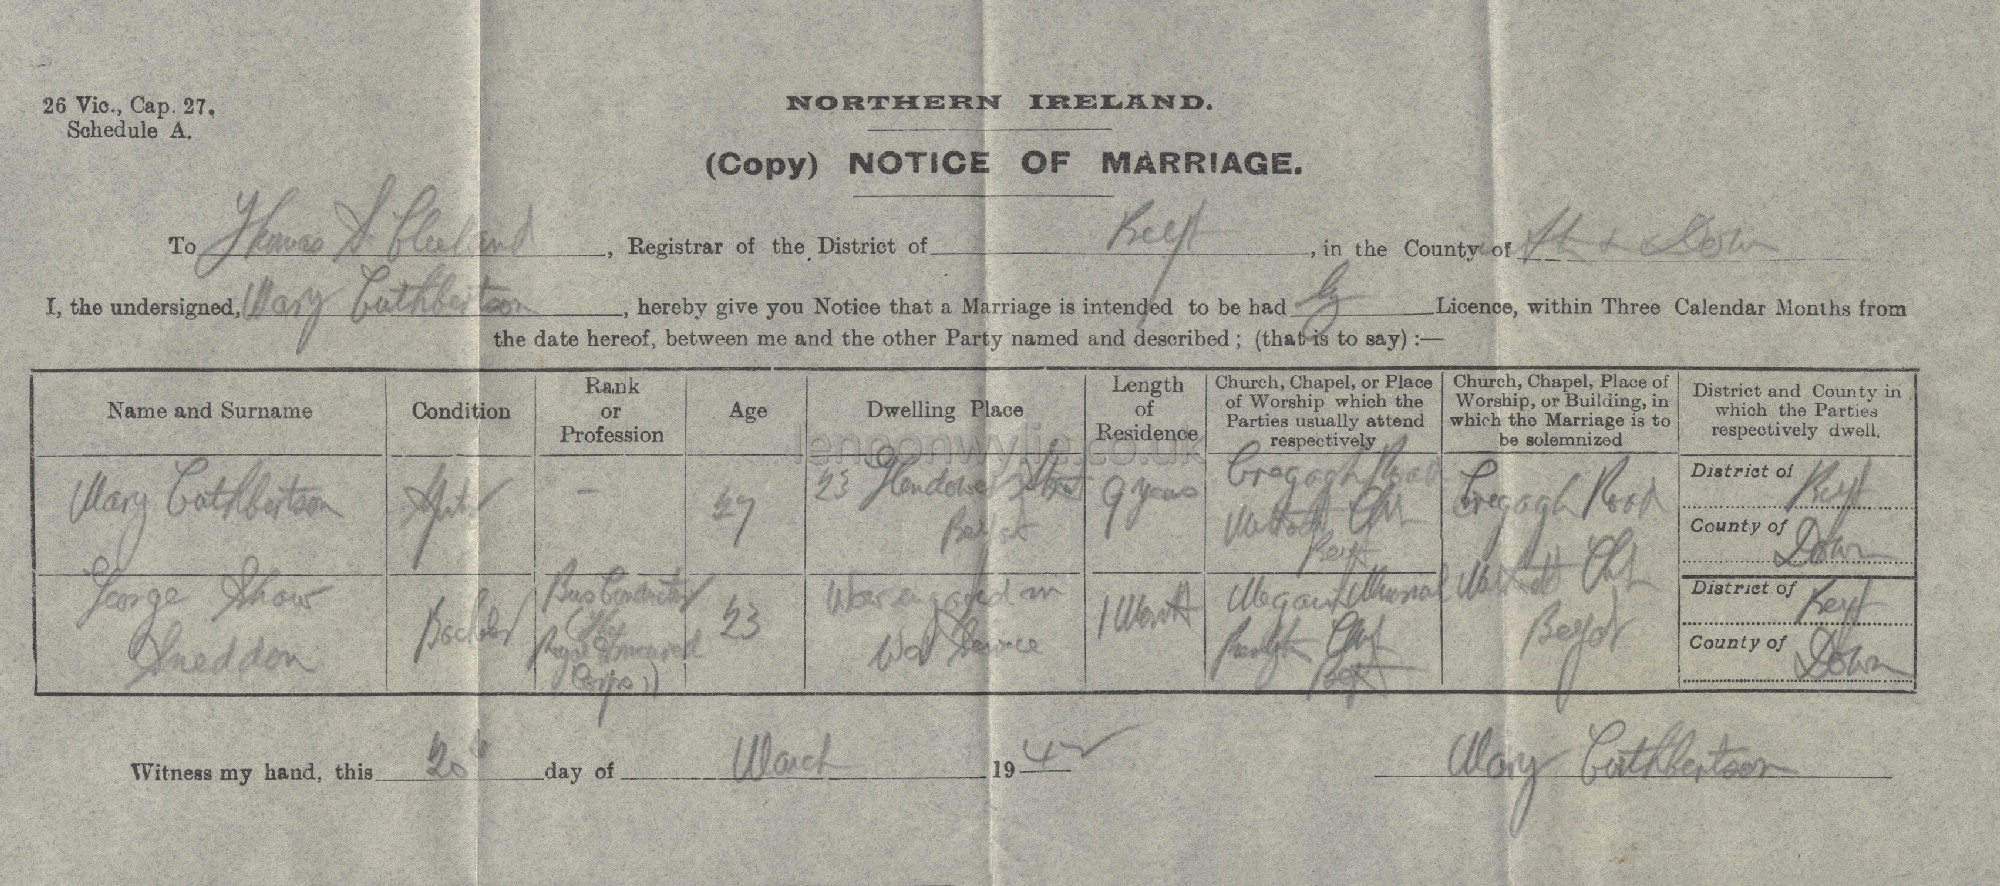 26 Vic., Cap. 27.
Schedule A.
NORTHERN IRELAND.
(Copy) NOTICE OF MARRIAGE.
To Thomas S Cleeland, Registrar of the District of Belfst, in the County of & Down
I, the undersigned, Mary Cuthbertson, hereby give you Notice that a Marriage is intended to be had by Licence, within Three Calendar Months from
the date hereof, between me and the other Party named and described; (that is to say) :—
Name and Surname
Condition
Rank
or
Profession
Age
Dwelling Place
Length
of
Residence
Church, Chapel, or Place
of Worship which the
Parties usually attend
respectively
Church, Chapel, Place of
Worship, or Building, in
which the Marriage is to
be solemnized
District and County in
which the Parties
respectively dwell.
lennonwylie.co.uk
Mary Cuthbertson
–
27
23 Glendower Street
Belfast
9 years
Cregagh Road
Cregagh Road
District of Belfst
County of Down
George Shaw
Sneddon
Bachelor
Bus Conductor
Royal Armoured
Corps))
23
War engaged in
War Service
1 Month
Megain Memorial
Belfst
District of Belfst
County of Down
Witness my hand, this 20 day of March 1942
Mary Cuthbertson